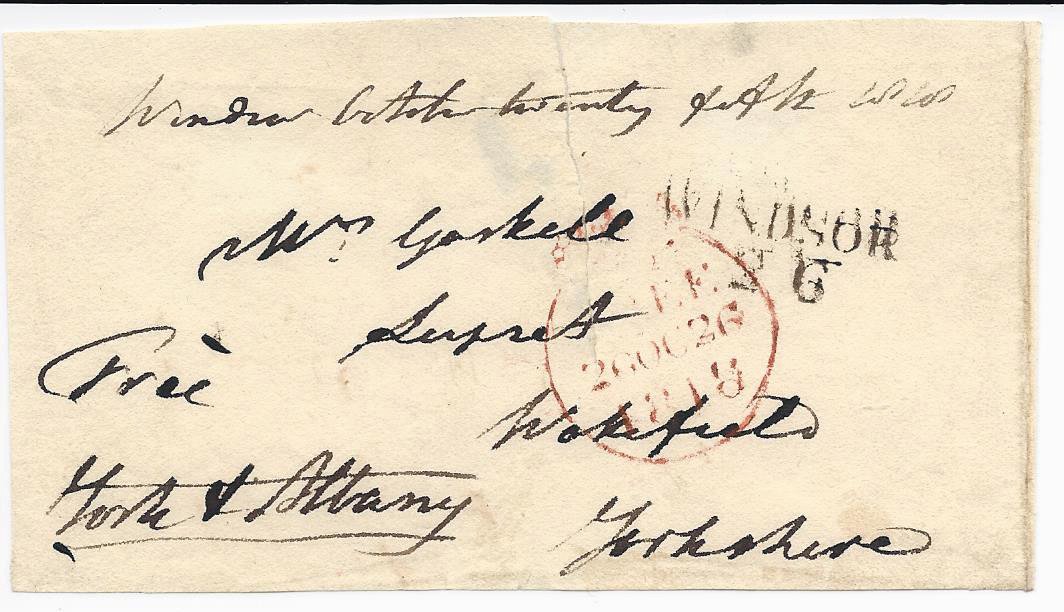 Windsor October twenty fifth 1818
Mrs. Gaskell
WINDSOR
FREE
26OC26
1818
Lupset
Free
Wakefield
York & Albany
Yorkshire